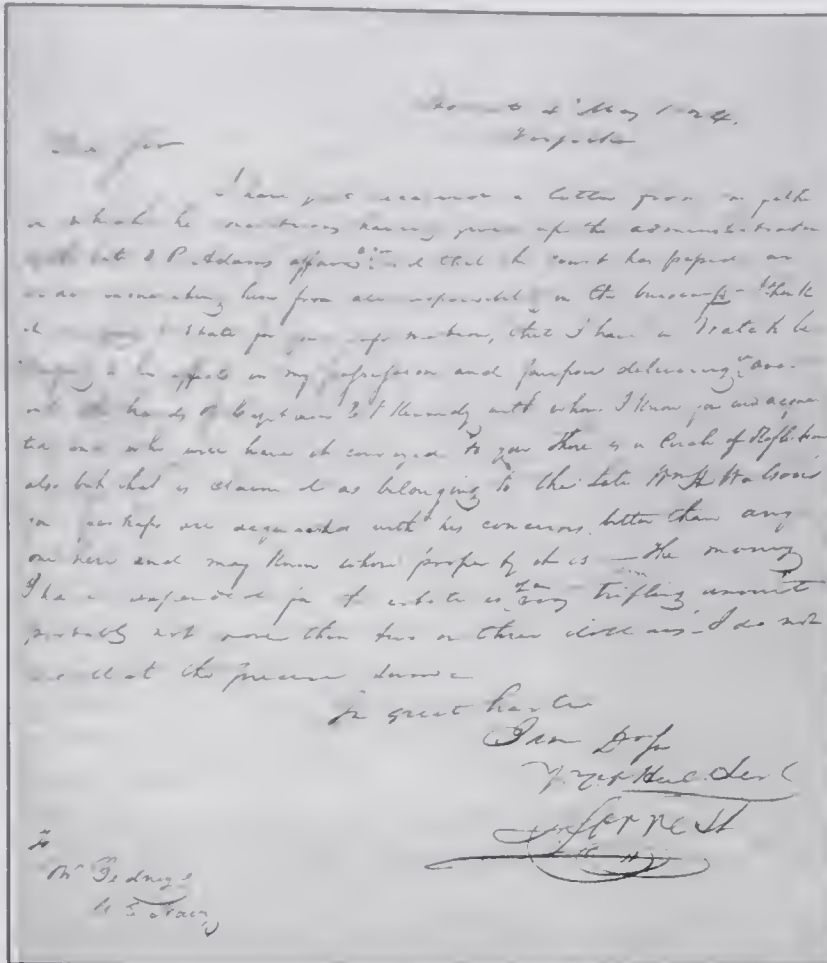 4 May 1824.
Norfolk
Sir
I have just received a letter from my father
in which he mentions having given up the administration
late P. Adams affairs and that the court has passed an
order him from all responsibility in the business I think
it to state for your information, that I have a Watch be
longing to his effects in my possession and purpose delivering
the hands of Captain E P Kennedy with whom I know you are acquain
ted and who will have it conveyed to you There is a Circle of Reflection
also but that is claimed as belonging to the late Wm H Watson's
you perhaps are acquainted with his concerns better than any
one here and may know whose property it is — the money
I have expended for the estate is of a very trifling amount
probably not more than two or three dollars — I do not
at the precise sum
In great haste
I am
Yr Hue. Servt
To
Mr Gedney
U S Navy